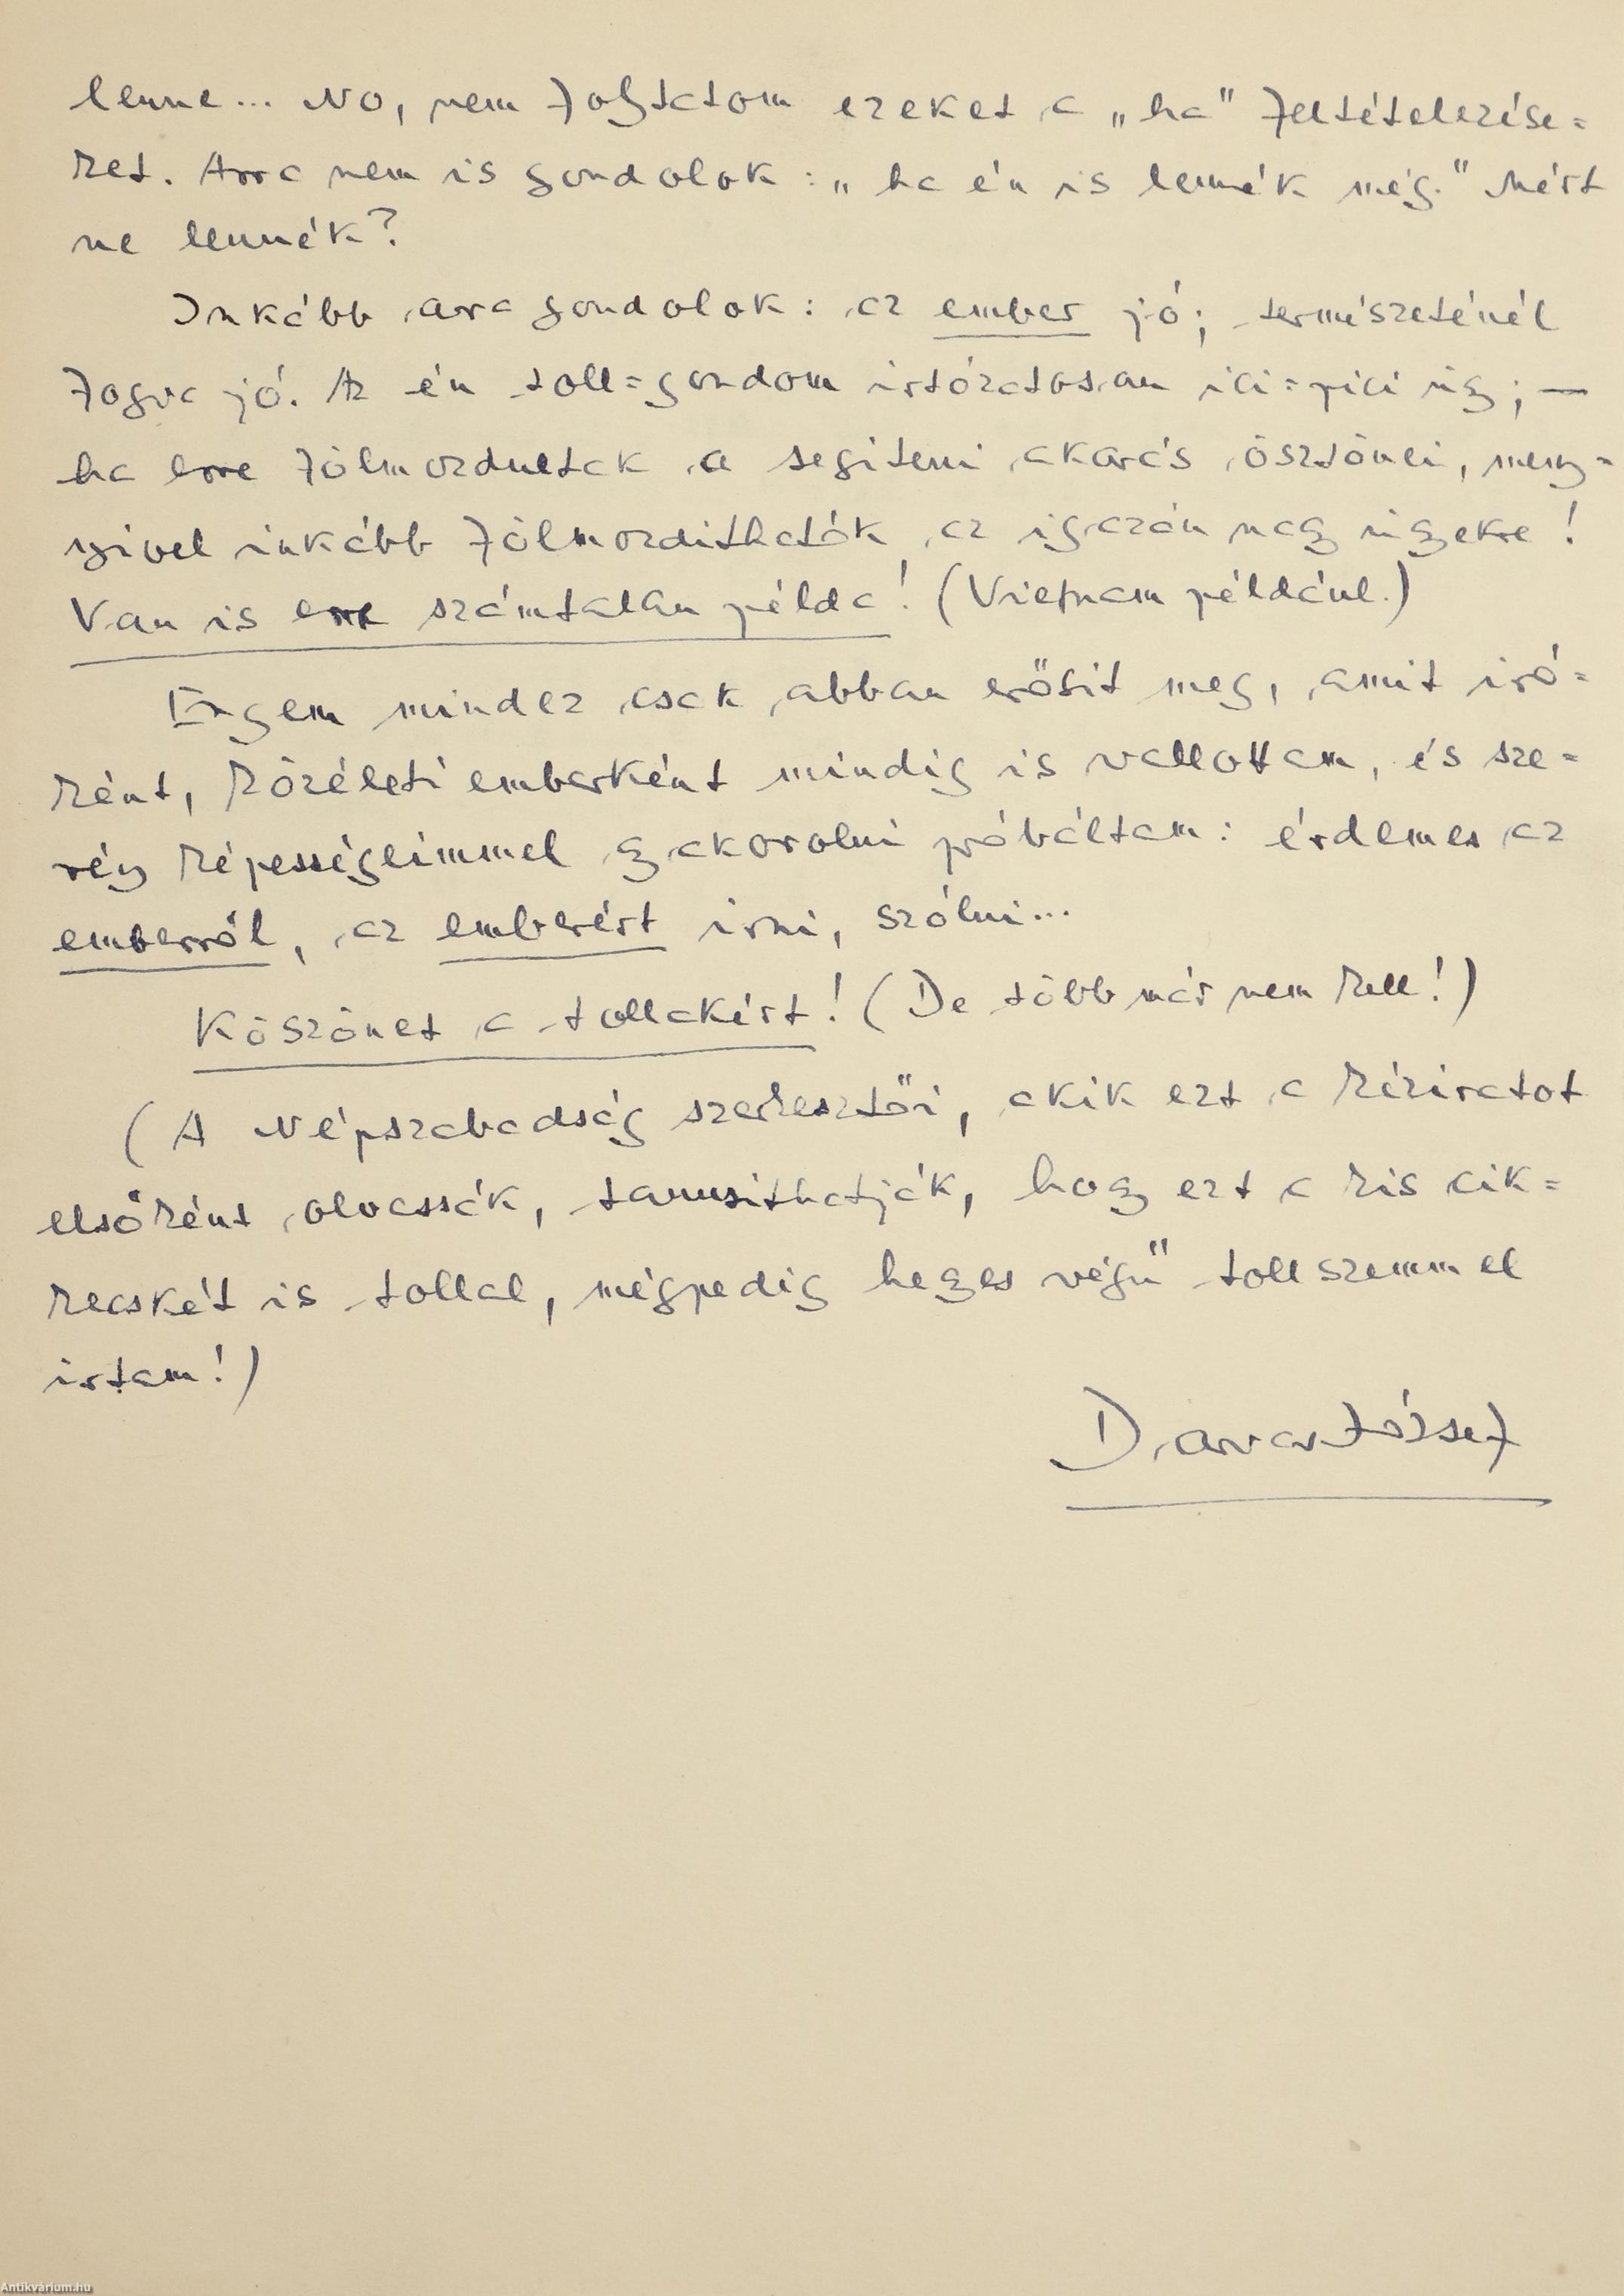 lenne... No, nem folytatom ezeket a „ha" feltételezése=
ket. Arra nem is gondolok: „ha én is lennék még." Mért
ne lennék?
Inkább arra gondolok: az ember jó; természeténél
fogva jó. Az én toll=gondom irtózatosan ici=pici ügy; —
ha erre fölmozdultak a segíteni akarás ösztönei, meny=
nyivel inkább fölmozdíthatók az igazán nagy ügyekre!
Van is erre számtalan példa! (Vietnam például.)
Engem mindez csak abban erősít meg, amit író=
ként, közéleti emberként mindig is vallottam, és sze=
rény képességeimmel gyakorolni próbáltam: érdemes az
emberről, az emberért írni, szólni...
Köszönet a tollakért! (De több már nem kell!)
(A Népszabadság szerkesztői, akik ezt a kéziratot
elsőként olvassák, tanusíthatják, hogy ezt a kis cik=
kecskét is tollal, mégpedig hegyes végű tollszemmel
írtam!)
Darvas József
Antikvárium.hu